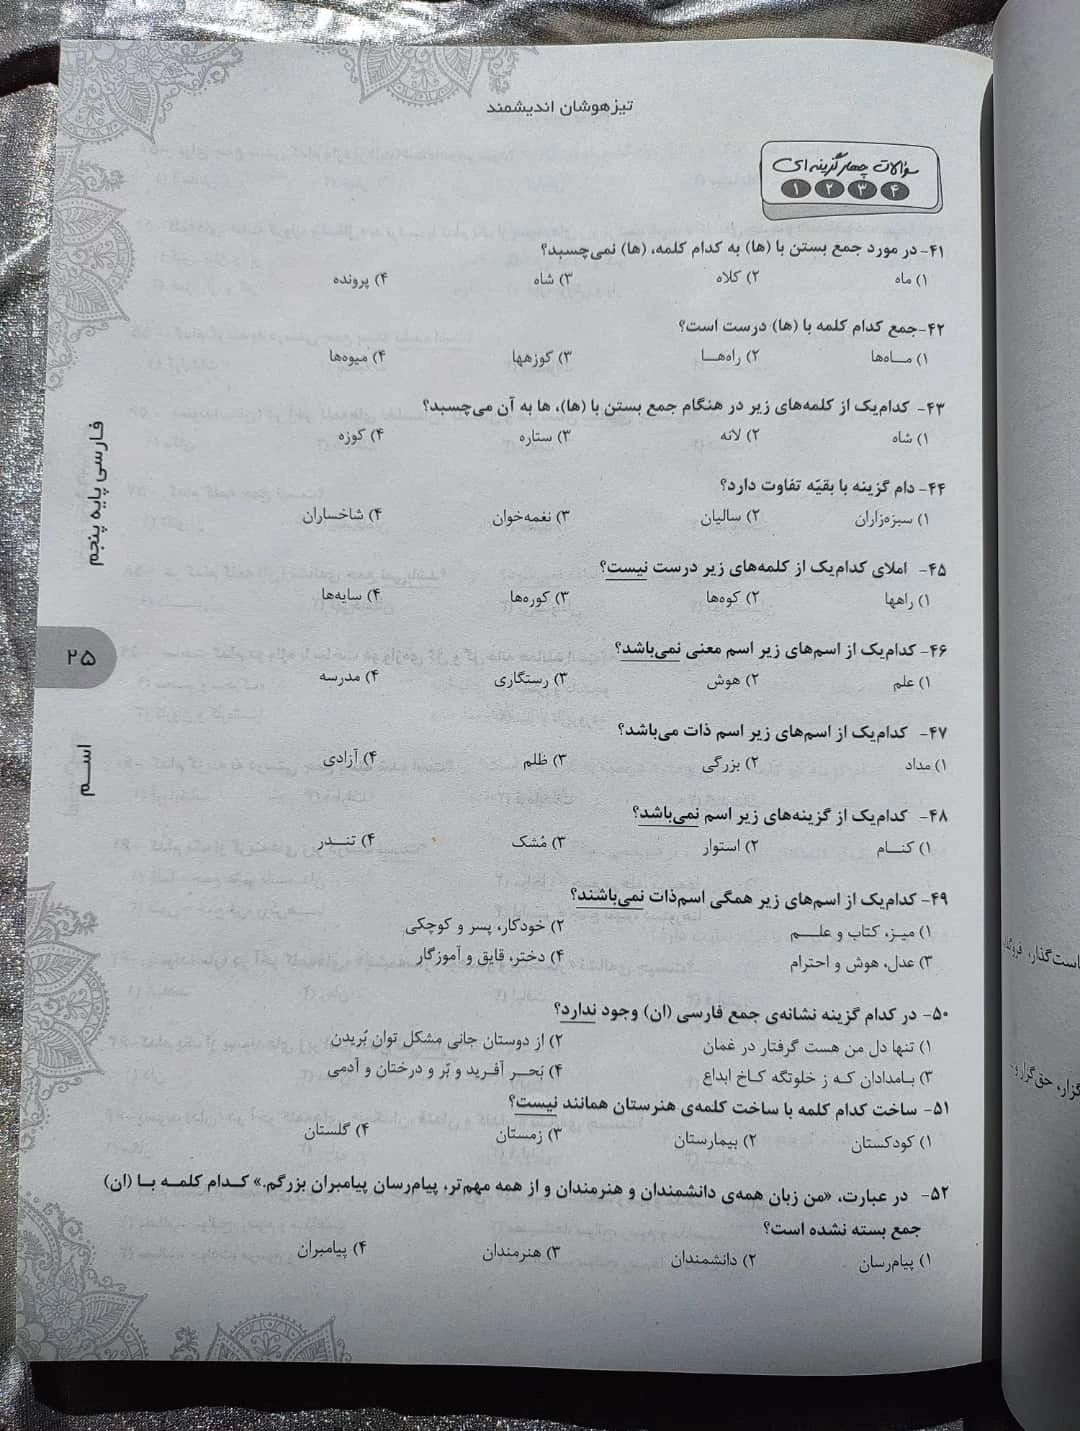 تیزهوشان اندیشمند
سؤالات چهارگزینه‌ای
۱ ۲ ۳ ۴
۴۱- در مورد جمع بستن با (ها) به کدام کلمه، (ها) نمی‌چسبد؟
۱) ماه ۲) کلاه ۳) شاه ۴) پرونده
۴۲- جمع کدام کلمه با (ها) درست است؟
۱) مــاه‌ها ۲) راه‌هــا ۳) کوزهها ۴) میوه‌ها
۴۳- کدام‌یک از کلمه‌های زیر در هنگام جمع بستن با (ها)، ها به آن می‌چسبد؟
۱) شاه ۲) لانه ۳) ستاره ۴) کوزه
۴۴- دام گزینه با بقیّه تفاوت دارد؟
۱) سبزه‌زاران ۲) سالیان ۳) نغمه‌خوان ۴) شاخساران
۴۵- املای کدام‌یک از کلمه‌های زیر درست نیست؟
۱) راهها ۲) کوه‌ها ۳) کوره‌ها ۴) سایه‌ها
۴۶- کدام‌یک از اسم‌های زیر اسم معنی نمی‌باشد؟
۱) علم ۲) هوش ۳) رستگاری ۴) مدرسه
۴۷- کدام‌یک از اسم‌های زیر اسم ذات می‌باشد؟
۱) مداد ۲) بزرگی ۳) ظلم ۴) آزادی
۴۸- کدام‌یک از گزینه‌های زیر اسم نمی‌باشد؟
۱) کنــام ۲) استوار ۳) مُشک ۴) تنــدر
۴۹- کدام‌یک از اسم‌های زیر همگی اسم‌ذات نمی‌باشند؟
۱) میـز، کتاب و علـــم ۲) خودکار، پسر و کوچکی
۳) عدل، هوش و احترام ۴) دختر، قایق و آموزگار
۵۰- در کدام گزینه نشانه‌ی جمع فارسی (ان) وجود ندارد؟
۱) تنها دل من هست گرفتار در غمان ۲) از دوستان جانی مشکل توان بُریدن
۳) بـامدادان کـه ز خلوتگه کـاخ ابداع ۴) بَحـر آفـرید و بّر و درختان و آدمی
۵۱- ساخت کدام کلمه با ساخت کلمه‌ی هنرستان همانند نیست؟
۱) کودکستان ۲) بیمارستان ۳) زمستان ۴) گلستان
۵۲- در عبارت، «من زبان همه‌ی دانشمندان و هنرمندان و از همه مهم‌تر، پیام‌رسان پیامبران بزرگم.» کـدام کلمـه بـا (ان)
جمع بسته نشده است؟
۱) پیام‌رسان ۲) دانشمندان ۳) هنرمندان ۴) پیامبران
فارسی پایه پنجم
۲۵
اســم